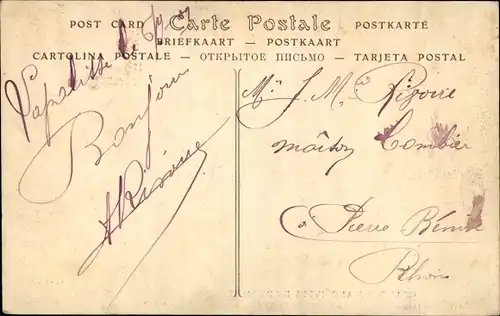 POST CARD Carte Postale POSTKARTE
BRIEFKAART — POSTKAART
CARTOLINA POSTALE — ОТКРЫТОЕ ПИСЬМО — TARJETA POSTAL
le
Bonjour
M. J. M.
maison Combier
à Pierre Bénite
Rhône